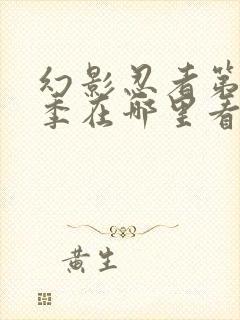 幻影忍者第
季在哪里看
黄生